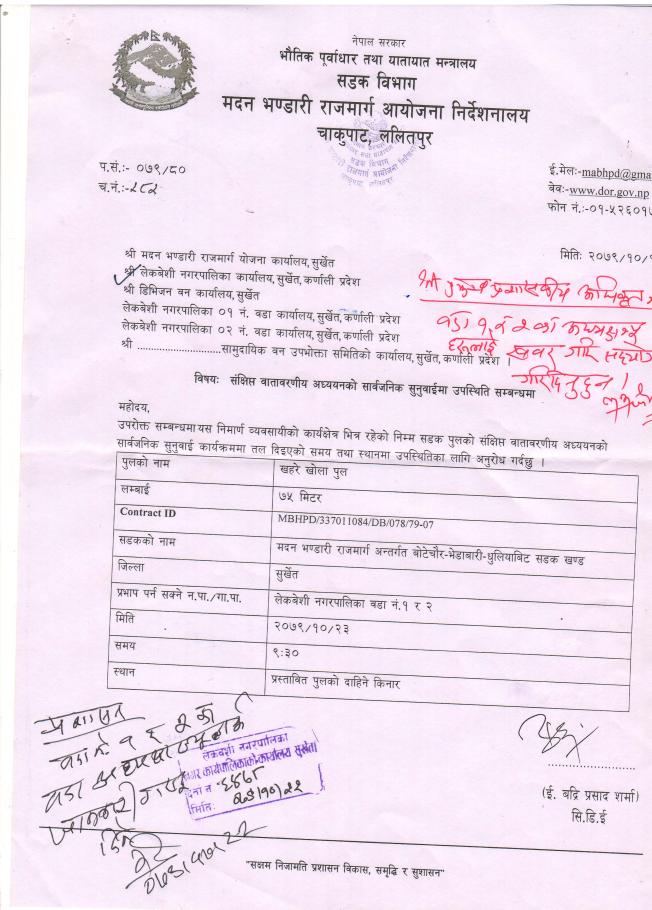 नेपाल सरकार
भौतिक पूर्वाधार तथा यातायात मन्त्रालय
सडक विभाग
मदन भण्डारी राजमार्ग आयोजना निर्देशनालय
चाकुपाट, ललितपुर
प.सं.:- ०७९/८०
च.नं.:-२८२
ई.मेल:-mabhpd@gma
वेव:-www.dor.gov.np
फोन नं.:-०१-५२६०१५
मिति: २०७९/१०/
श्री मदन भण्डारी राजमार्ग योजना कार्यालय,सुर्खेत
श्री लेकबेशी नगरपालिका कार्यालय,सुर्खेत,कर्णाली प्रदेश
श्री डिभिजन वन कार्यालय,सुर्खेत
लेकबेशी नगरपालिका ०१ नं. वडा कार्यालय,सुर्खेत,कर्णाली प्रदेश
लेकबेशी नगरपालिका ०२ नं. वडा कार्यालय,सुर्खेत,कर्णाली प्रदेश
श्री ............................सामुदायिक वन उपभोक्ता समितिको कार्यालय,सुर्खेत,कर्णाली प्रदेश ।
प्रशासकीय अधिकृत
वडा १ र २ का
हरूलाई खबर गरि
गरिदिनुहुन ।
विषयः संक्षिप्त वातावरणीय अध्ययनको सार्वजनिक सुनुवाईमा उपस्थिति सम्बन्धमा
महोदय,
उपरोक्त सम्बन्धमा यस निमार्ण व्यवसायीको कार्यक्षेत्र भित्र रहेको निम्म सडक पुलको संक्षिप्त वातावरणीय अध्ययनको
सार्वजनिक सुनुवाई कार्यक्रममा तल दिइएको समय तथा स्थानमा उपस्थितिका लागि अनुरोध गर्दछु ।
पुलको नाम खहरे खोला पुल
लम्बाई ७५ मिटर
Contract ID MBHPD/337011084/DB/078/79-07
सडकको नाम मदन भण्डारी राजमार्ग अन्तर्गत बोटेचौर-भेडाबारी-धुलियाबिट सडक खण्ड
जिल्ला सुर्खेत
प्रभाप पर्न सक्ने न.पा./गा.पा. लेकबेशी नगरपालिका वडा नं.१ र २
मिति २०७९/१०/२३
समय ९:३०
स्थान प्रस्तावित पुलको दाहिने किनार
प्रशासन
वडा नं १ र २ को
वडा
जानकारी
लेकबेशी नगरपालिका
नगर कार्यपालिकाको कार्यालय सुर्खेत
मिति:
(ई. बद्रि प्रसाद शर्मा)
सि.डि.ई
"सक्षम निजामति प्रशासन विकास, समृद्धि र सुशासन"